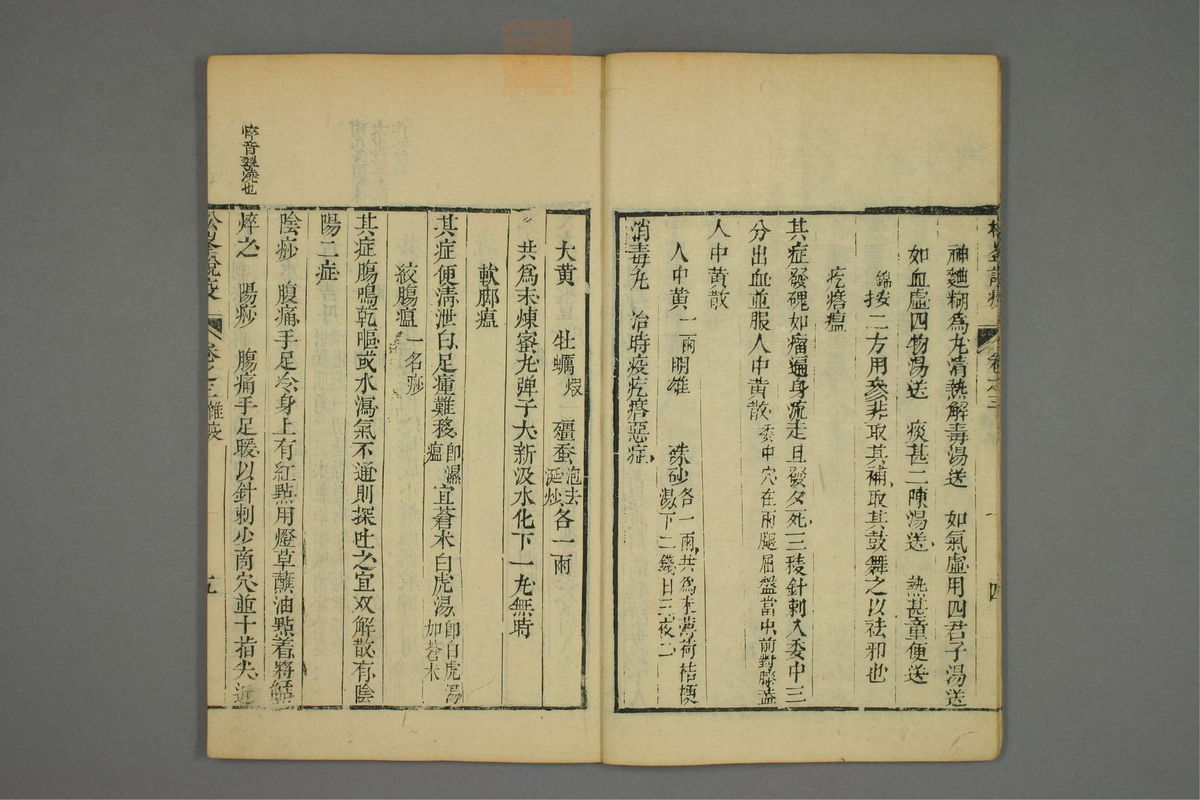 松峯說疫 卷之三 四
神麯糊爲丸清熱解毒湯送 如氣虛用四君子湯送
如血虛四物湯送 痰甚二陳湯送 熱甚童便送
錦按二方用參非取其補取其鼓舞之以祛邪也
疙瘩瘟
其症發磈如瘤遍身流走旦發夕死三稜針刺入委中三
分出血並服人中黃散委中穴在兩腿屈盤當中前對膝蓋
人中黃散
人中黃二兩明雄 硃砂各一兩共為末薄荷桔梗湯下二錢日三夜二
消毒丸 治時疫疙瘩惡症
大黃 牡蠣煆 殭蠶泡去涎炒各一兩
共爲末煉蜜丸彈子大新汲水化下一丸無時
軟脚瘟
其症便清泄白足瘇難移即濕瘟宜蒼朮白虎湯即白虎湯加蒼朮
絞腸瘟一名痧
其症腸鳴乾嘔或水瀉氣不通則探吐之宜双解散有陰
陽二症
陰痧 腹痛手足冷身上有紅點用燈草蘸油點着將
焠之 陽痧 腸痛手足暖以針刺少商穴並十指尖近
焠音翠燒也
松峯說疫 卷之三雜疫 五